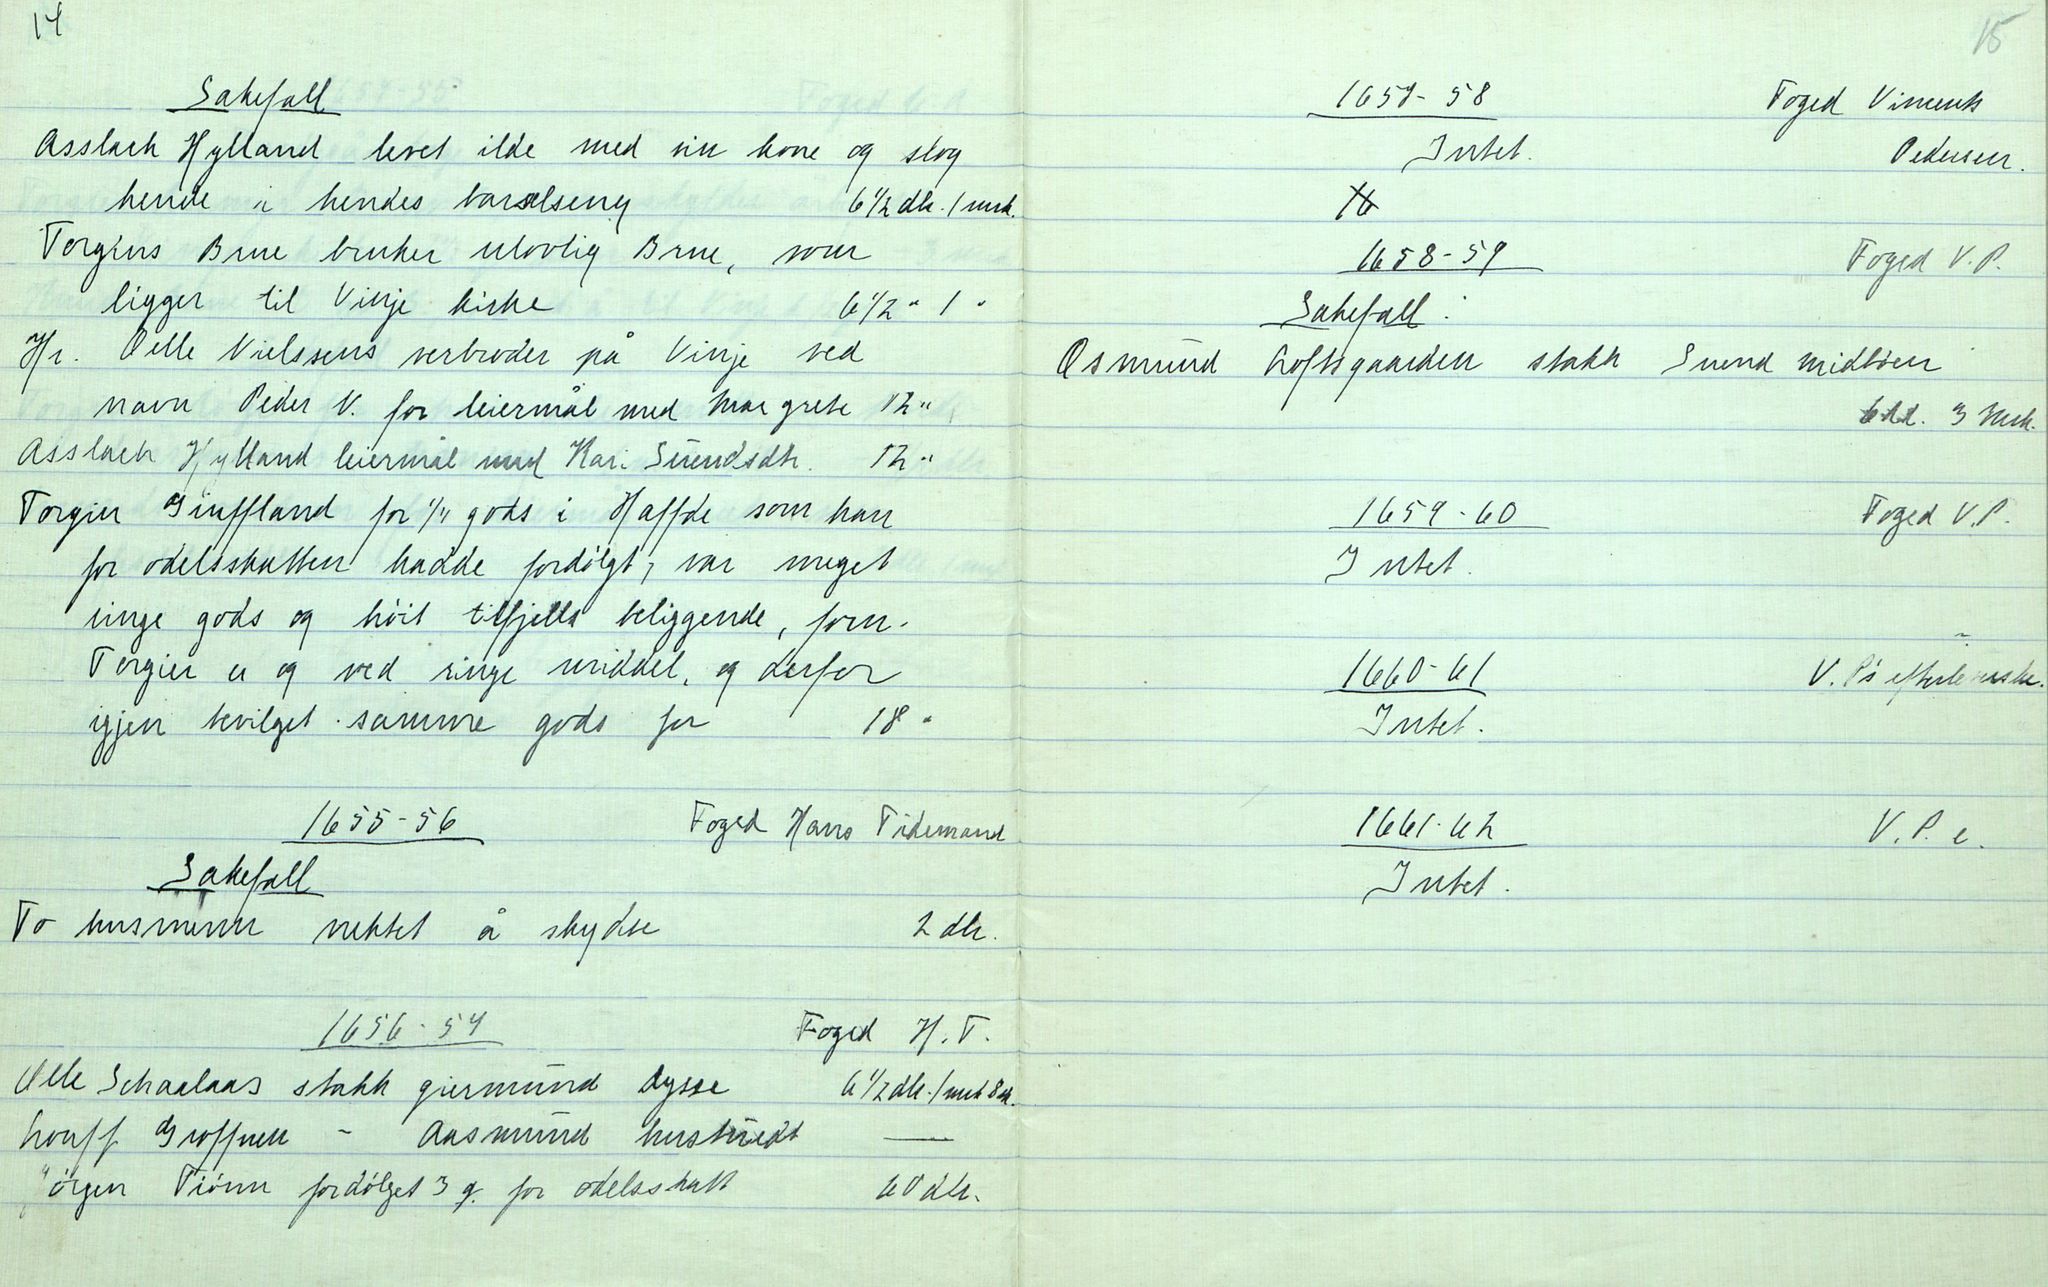 14
Sakefall
Asslach Hylland levet ilde med sin kone og slog
hende i hendes barselseng 6 1/2 dlr. 1 mrk.
Torgius Brue bruker ulovlig Brue, som
ligger til Vinje kirke 6 1/2 " 1 "
Hr. Oelle Nielssens verbroder på Vinje ved
navn Peder V. for leiermål med Margrete 12 "
Asslach Hylland leiermål med Kari Suendsdtr. 12 "
Torgier Giuffland for gods i Haffde som han
for odelsskatten hadde fordølgt, var meget
ringe gods og høit tilfjells beliggende, forn.
Torgier er og ved ringe middel, og derfor
igjen bevilget samme gods for 18 "
1655-56 Foged Hans Tidemand
Sakefall
To husmenn nektet å skydse 2 dlr.
1656-57 Foged H. T.
Olle Schaalaas stakk giermund Lysse 6 1/2 dlr. 1 mrk 8 sk.
Louff Groffuen - Aasmund hustuedt —
Jørgen Tiönn fordølget 3 g. for odelsskatt 60 dlr.
15
1657-58 Foged Vincents
Intet. Pedersen.
16
1658-59 Foged V. P.
Sakefall:
Osmund Loftsgaarden stakk Suend midböen
6 dlr. 3 mrk.
1659-60 Foged V. P.
Intet.
1660-61 V. P's efterleverske.
Intet.
1661-62 V. P. e.
Intet.